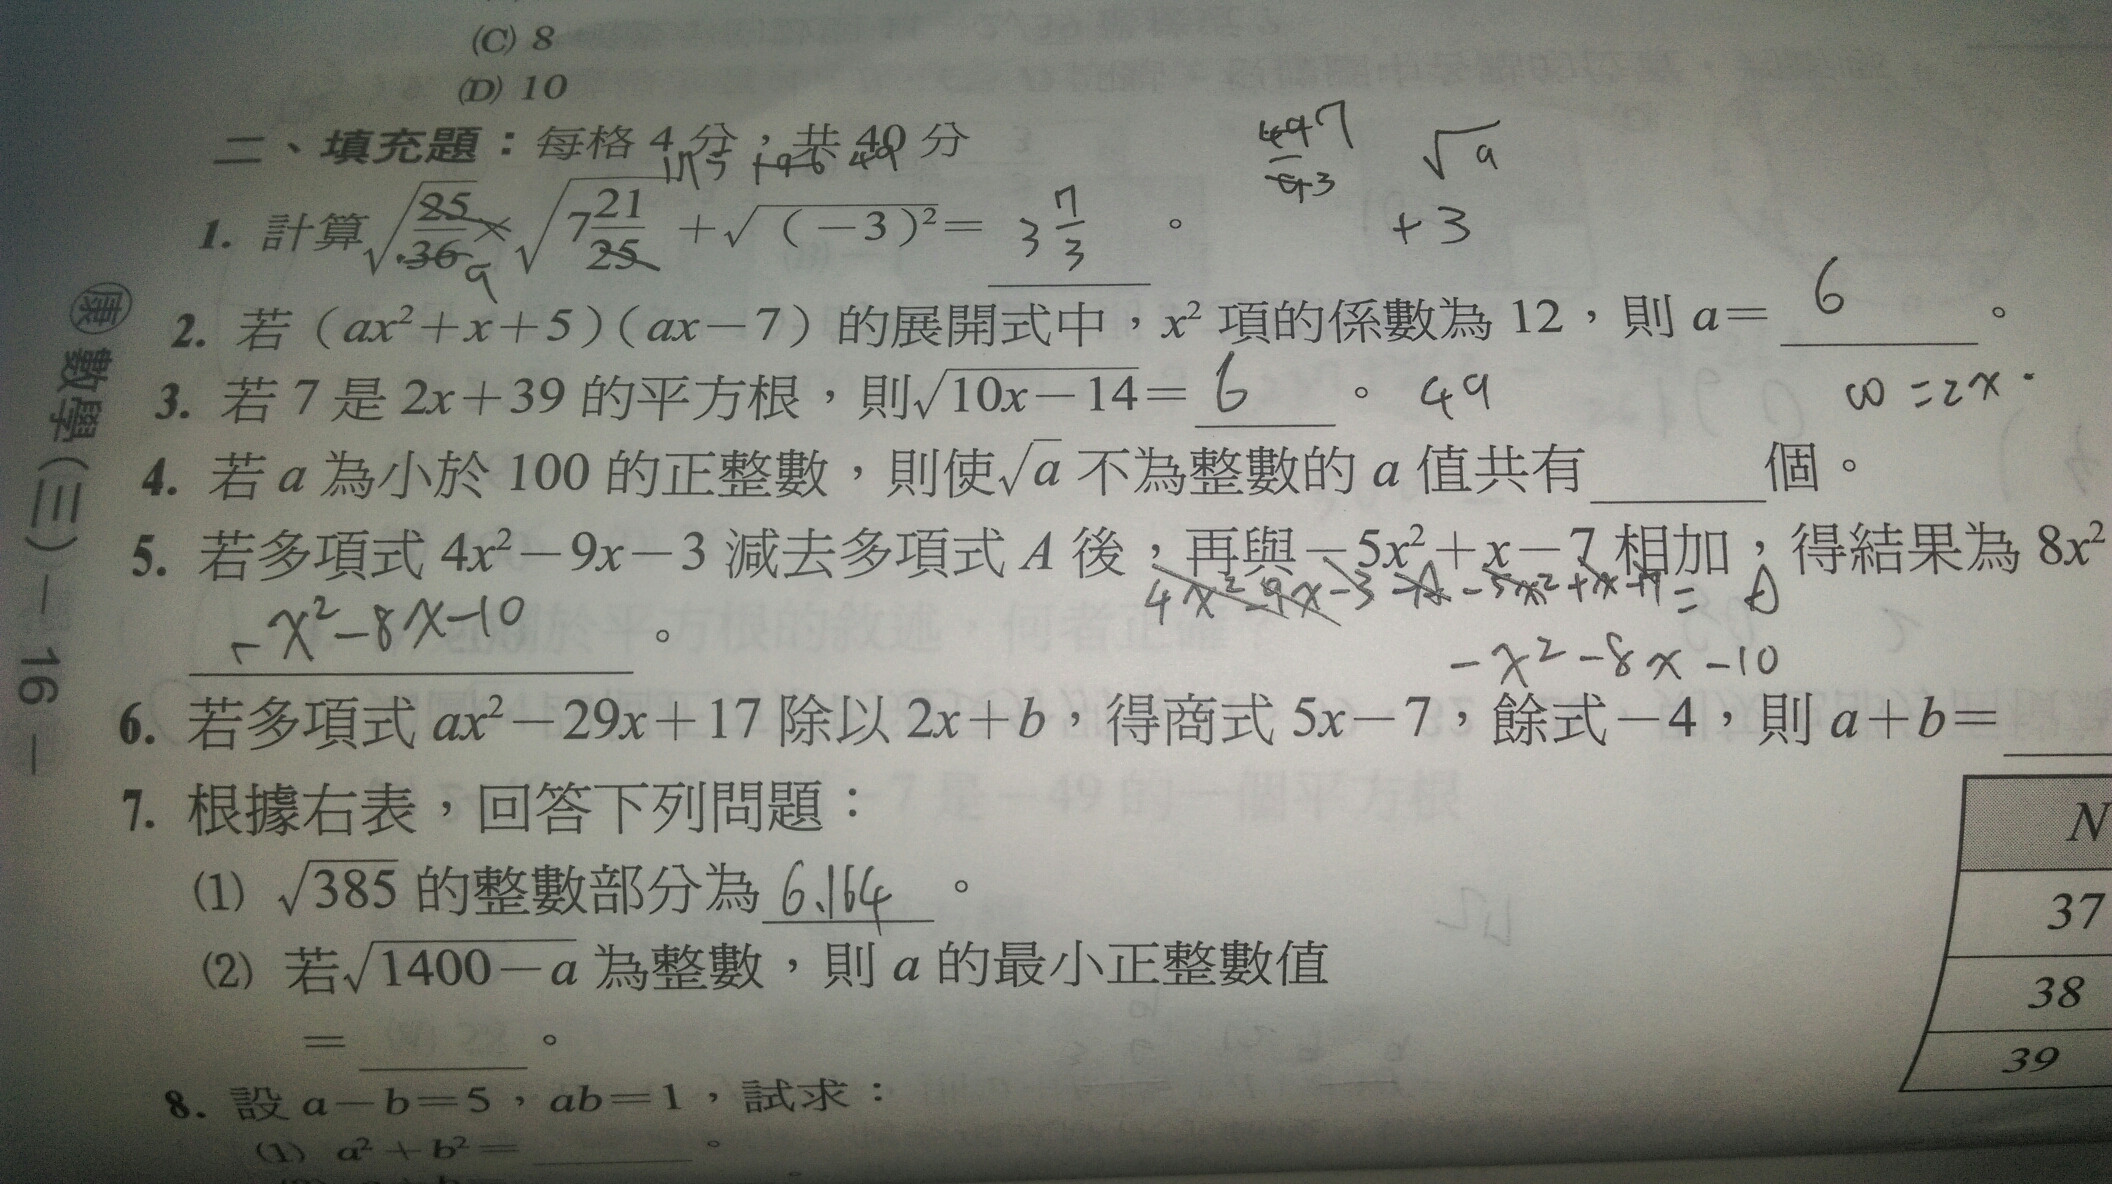 (C) 8
(D) 10
二、填充題：每格 4 分，共 40 分
175 196 49
1. 計算√25/36 × √7 21/25 + √(−3)² = 3 7/3 。
9
497
√9
+3
2. 若（ax²+x+5）（ax−7）的展開式中，x² 項的係數為 12，則 a= 6 。
3. 若 7 是 2x+39 的平方根，則√10x−14 = 6 。 49
=2x
4. 若 a 為小於 100 的正整數，則使√a 不為整數的 a 值共有 個。
5. 若多項式 4x²−9x−3 減去多項式 A 後，再與−5x²+x−7 相加，得結果為 8x²
4x²−9x−3−A−5x²+x−7=
−x²−8x−10 。
−x²−8x−10
6. 若多項式 ax²−29x+17 除以 2x+b，得商式 5x−7，餘式−4，則 a+b=
7. 根據右表，回答下列問題：
(1) √385 的整數部分為 6.164 。
(2) 若√1400−a 為整數，則 a 的最小正整數值
= 。
N
37
38
39
8. 設 a−b=5，ab=1，試求：
(1) a²+b²= 。
康 數學(三)－16－